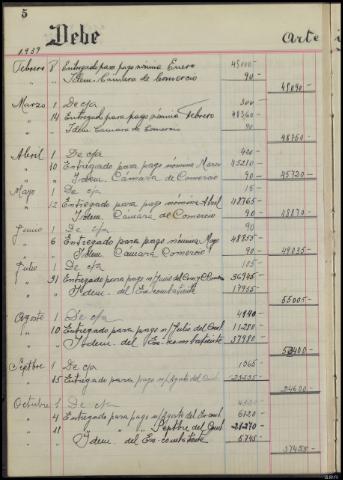 5
1939 Debe Arte
Febrero 8 Entregado para pago nómina Enero 45000-
" " Idem. Cámara de Comercio 90.- 45090.-
Marzo 1 De c/a 300
" 14 Entregado para pago nómina Febrero 48360-
" " Idem Camara de Comercio 90 48750-
Abril 1 De c/a 420-
" 10 Entregado para pago nómina Marzo 45210-
" " Idem. Cámara de Comercio 90 45720-
Mayo 1 De c/a 15-
" 12 Entregado para pago nómina Abril 48765
" " Idem. Cámara de Comercio 90.- 48870-
Junio 1 De c/a 90
" 6 Entregado para pago nómina Mayo 48855-
" " Idem Camara Comercio 90- 49035-
Julio 1 De c/a 105-
" 31 Entregado para pago n/ Junio del 36945-
" " Idem. del Ex-combatiente 17955- 55005-
Agosto 1 De c/a 4140
" 10 Entregado para pago n/ Julio del 11280-
" " Idem. del Ex-combatiente 37980- 53400-
Septbre 1 De c/a 1065
" 15 Entregado para pago n/ Agosto del 24600-
Octubre 1 De c/a
" 4 Entregado para pago n/ Agosto del 6120
" 11 " " " Septbre del 21270-
" " Idem del Ex-combatiente 5745-